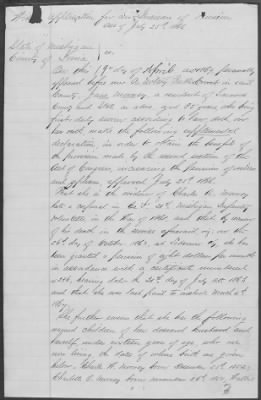 Widows application for an increase of Pension
Act of July 25th 1866
State of Michigan
County of Ionia
On this 19th day of April 1867, personally
appeared before me
County, Jane Morsey a resident of
County and State aged 35 years who being
first duly sworn according to law, doth on
her oath make the following supplemental
declaration, in order to obtain the benefit of
the provision made by the second section of the
Act of Congress, increasing the pensions of widows
and orphans approved July 25th 1866
That she is the widow of Charles H. Morsey
late a in Co. 21st Michigan Infantry
Volunteers in the War of 1861 and that by reason
of his death in the service aforesaid, on the
26th day of October 1862, at she has
been granted a pension of eight dollars per month
in accordance with a certificate numbered
bearing date the 20th day of July 1865
and that she was last paid to include March 4th
1867.
She further swears that she has the following
named children of her deceased husband and
herself under sixteen years of age, who are
now living the dates of whose birth are given
below, Charles H. Morsey born December
Charlotte E. Morsey born November